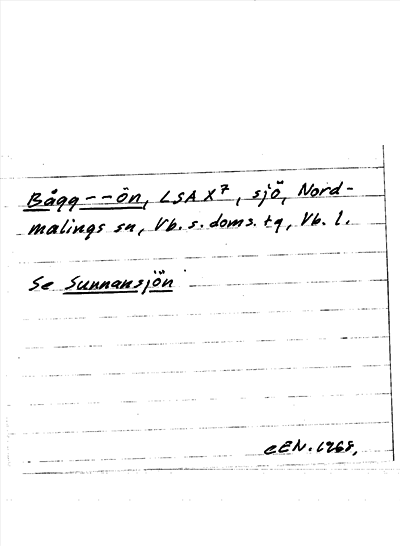 Bågg--ön, LSA X7, sjö, Nord-
malings sn, Vb. s. doms. tg, Vb. l.
Se Sunnansjön
CEN. 1968.